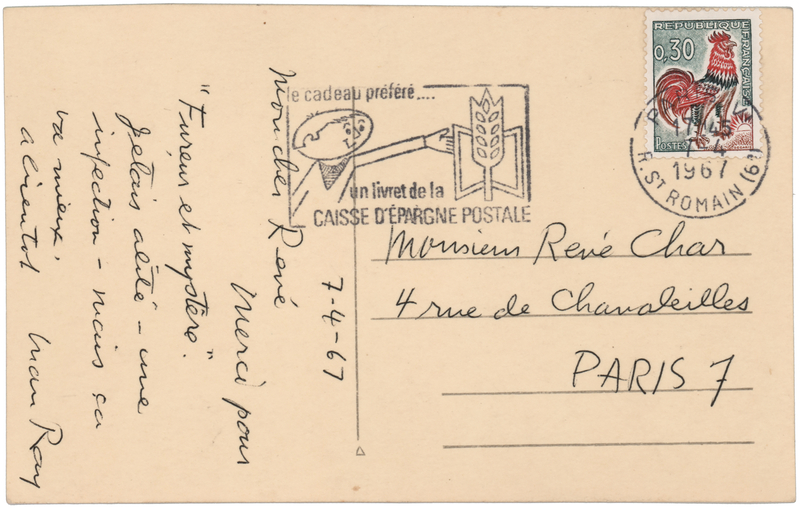 7-4-67
Mon cher René
Merci pour
"Fureur et mystère."
Jetais alité - une
infection - mais ça
va mieux.
à bientot Man Ray
le cadeau préféré....
un livret de la
CAISSE D'ÉPARGNE POSTALE
REPUBLIQUE FRANÇAISE
0,30
POSTES
7-4
1967
R. ST ROMAIN (6e)
Monsieur René Char
4 rue de Chanaleilles
PARIS 7